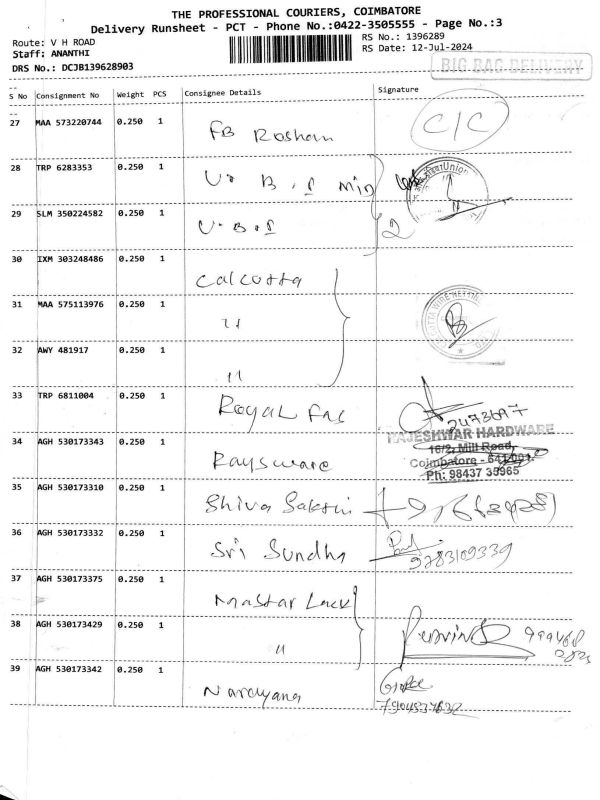 THE PROFESSIONAL COURIERS, COIMBATORE
Delivery Runsheet - PCT - Phone No.:0422-3505555 - Page No.:3
Route: V H ROAD
Staff: ANANTHI
DRS No.: DCJB139628903
RS No.: 1396289
RS Date: 12-Jul-2024
BIG BAG DELIVERY
S No Consignment No Weight PCS Consignee Details Signature
27 MAA 573220744 0.250 1 FB Roshan C/C
28 TRP 6283353 0.250 1 U. B. I Min
29 SLM 350224582 0.250 1 U. B. I 2
30 IXM 303248486 0.250 1 Calcutta
31 MAA 575113976 0.250 1 "
32 AWY 481917 0.250 1 "
33 TRP 6811004 0.250 1 Royal Fac 2473697
34 AGH 530173343 0.250 1 Raysware
RAJESHWAR HARDWARE
16/2, Mill Road,
Coimbatore - 641 001.
Ph: 98437 35965
35 AGH 530173310 0.250 1 Shiva Sakthi
36 AGH 530173332 0.250 1 Sri Sundha 9783109339
37 AGH 530173375 0.250 1 Mastar Lack
38 AGH 530173429 0.250 1 "
39 AGH 530173342 0.250 1 Narayana